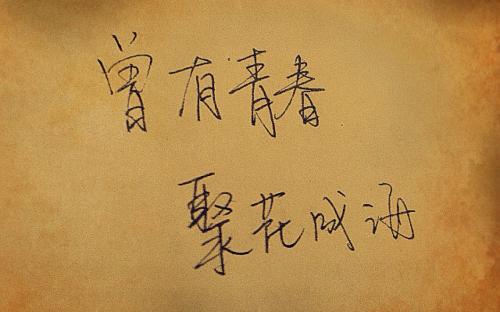 曾有青春
聚花成海